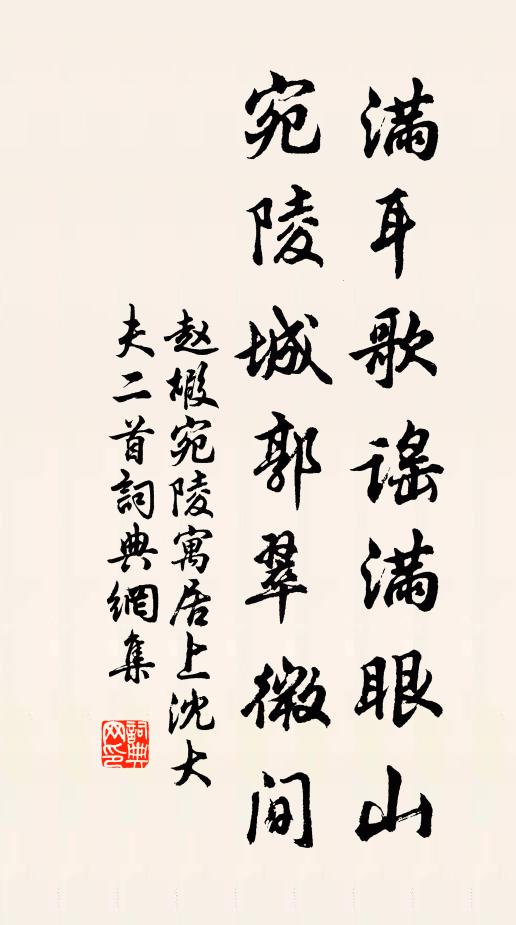 满耳歌谣满眼山
宛陵城郭翠微间
赵嘏宛陵寓居上沈大
夫二首詞典網集
詞典
网印